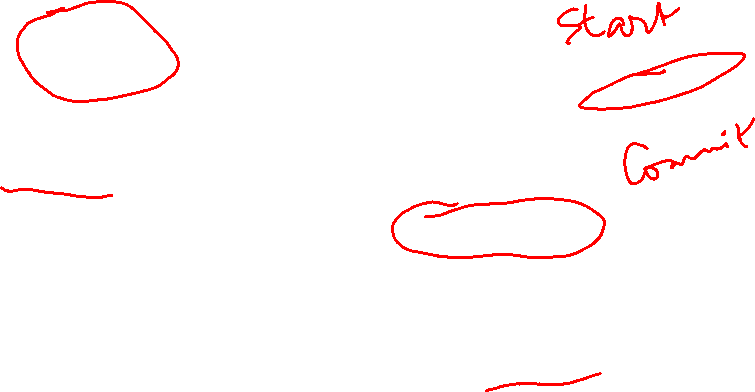 Start
Commit